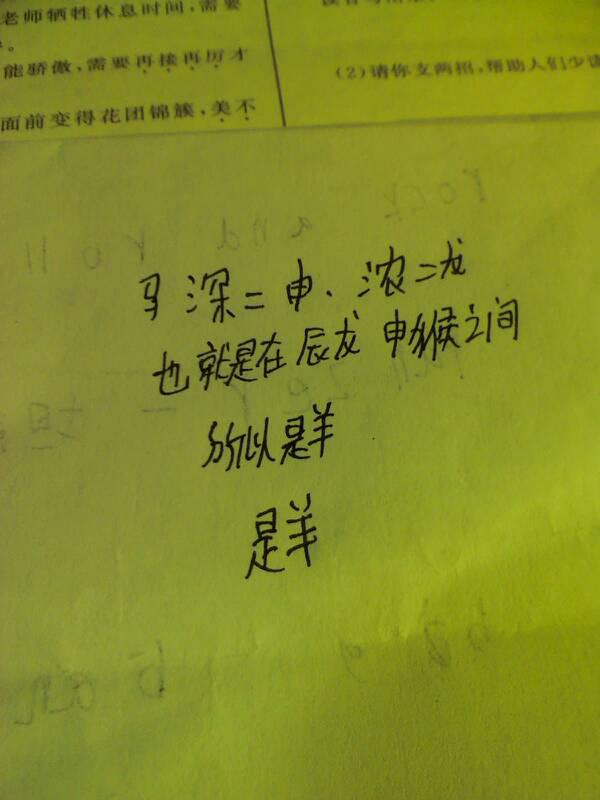 老师牺牲休息时间,需要
。
能骄傲,需要再接再厉才
面前变得花团锦簇,美不
(2)请你支两招,帮助人们少读
rock and roll
深=申、浓=龙
也就是在辰龙 申猴之间
所以是羊
是羊